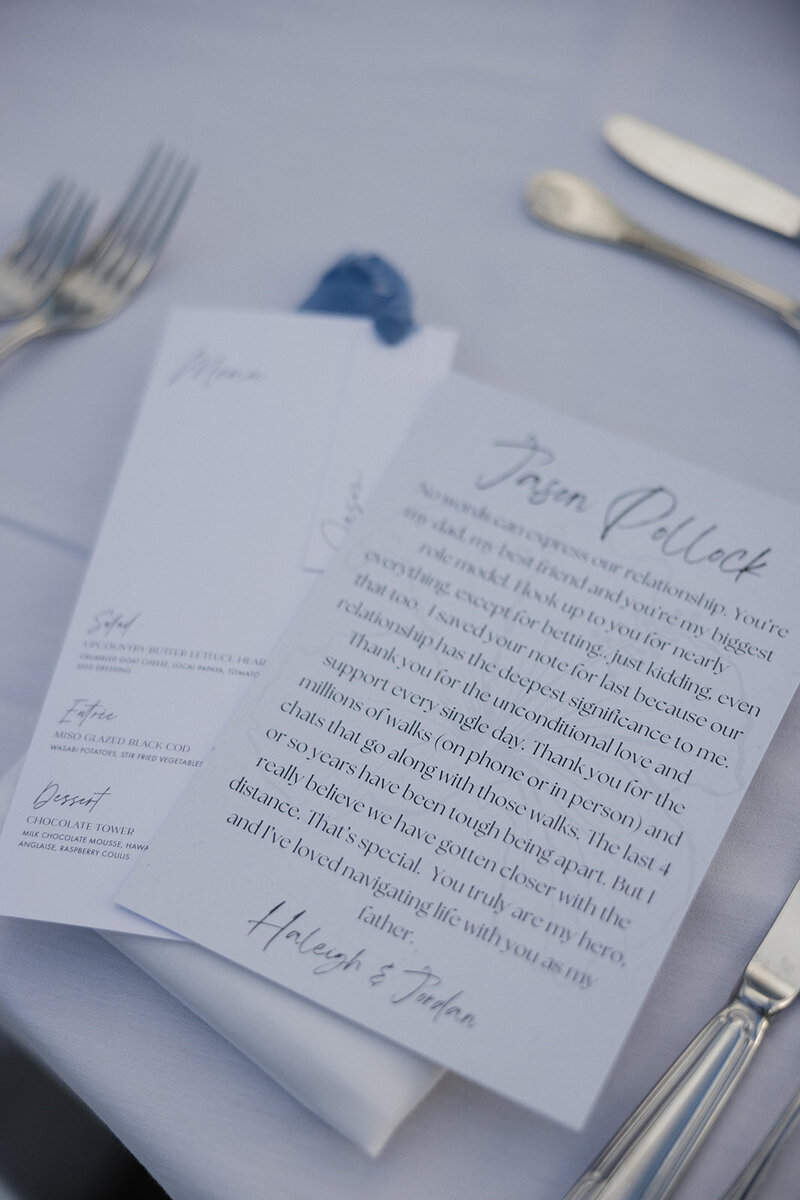 Menu
Salad
UPCOUNTRY BUTTER LETTUCE HEAR
CRUMBLED GOAT CHEESE, LOCAL PAPAYA, TOMATO
SEED DRESSING
Entrée
MISO GLAZED BLACK COD
WASABI POTATOES, STIR FRIED VEGETABLES
Dessert
CHOCOLATE TOWER
MILK CHOCOLATE MOUSSE, HAWA
ANGLAISE, RASPBERRY COULIS
Jason
Jason Pollock
No words can express our relationship. You're
my dad, my best friend and you're my biggest
role model. I look up to you for nearly
everything, except for betting.. just kidding, even
that too. I saved your note for last because our
relationship has the deepest significance to me.
Thank you for the unconditional love and
support every single day. Thank you for the
millions of walks (on phone or in person) and
chats that go along with those walks. The last 4
or so years have been tough being apart. But I
really believe we have gotten closer with the
distance. That's special. You truly are my hero,
and I've loved navigating life with you as my
father.
Haleigh & Jordan